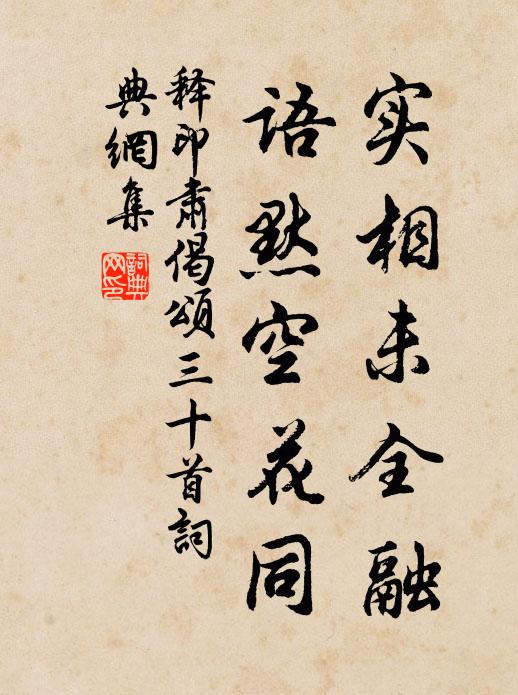 实相未全融
语默空花同
释印肃偈颂三十首詞
典網集
詞典
网印